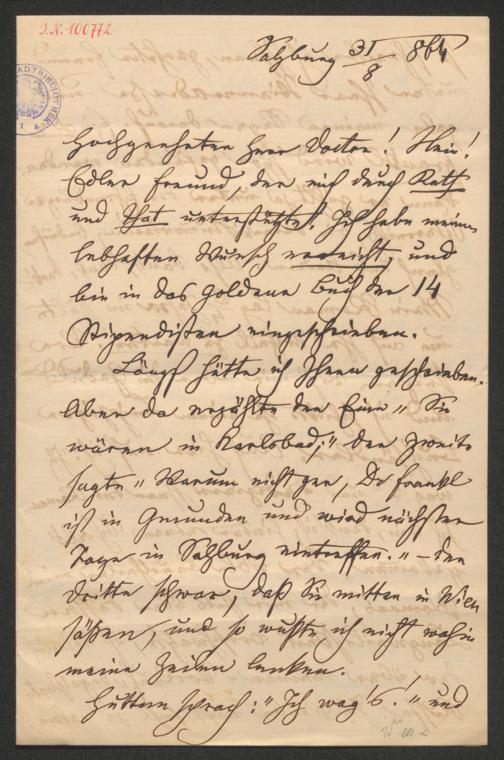 J.N. 100772
Salzburg 31/8 864
Hochgeehrter Herr Doctor! Nein!
Edler Freund, der mich durch Rath
und That unterstützte! Ich habe meinen
lebhaften Wunsch erreicht, und
bin in das goldene Buch der 14
Stipendisten eingeschrieben.
Längst hätte ich Ihnen geschrieben.
Aber da erzählte der Eine „Sie
wären in Karlsbad;" der zweite
sagte „Warum nicht gar, Dr Frankl
ist in Gmunden und wird nächster
Tage in Salzburg eintreffen." – der
dritte schwor, daß Sie mitten in Wien
säßen, und so wußte ich nicht wohin
meine Zeilen lenken.
Hutten sprach: „Ich wag's!" und